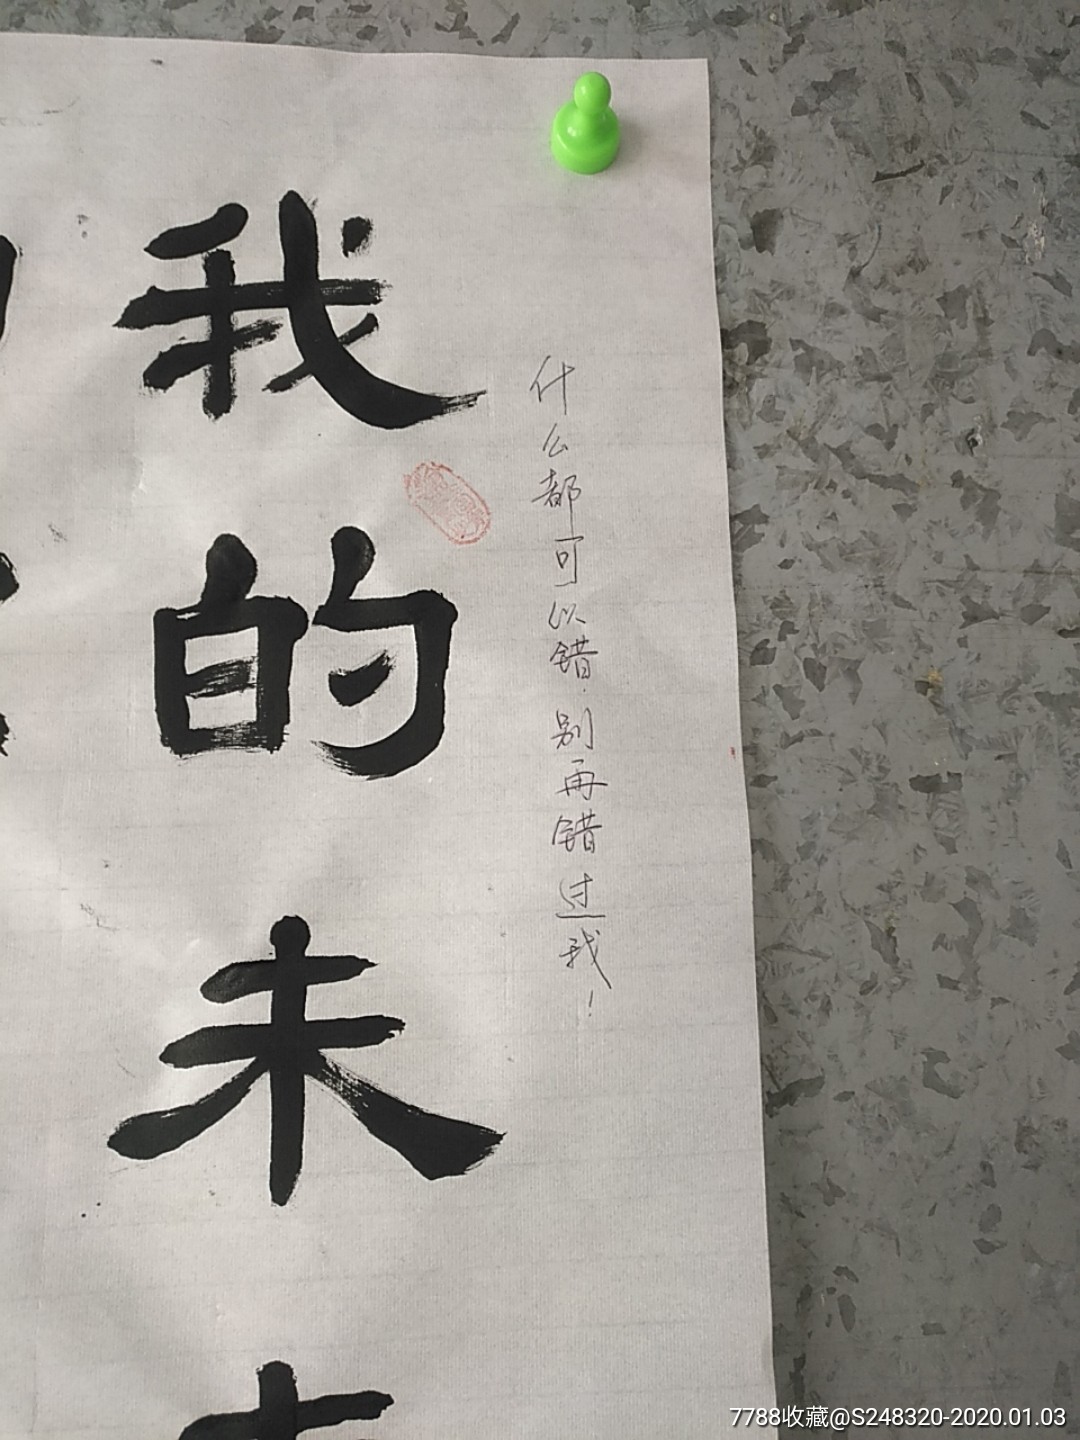 什么都可以错,别再错过我!
我的未
7788收藏@S248320-2020.01.03